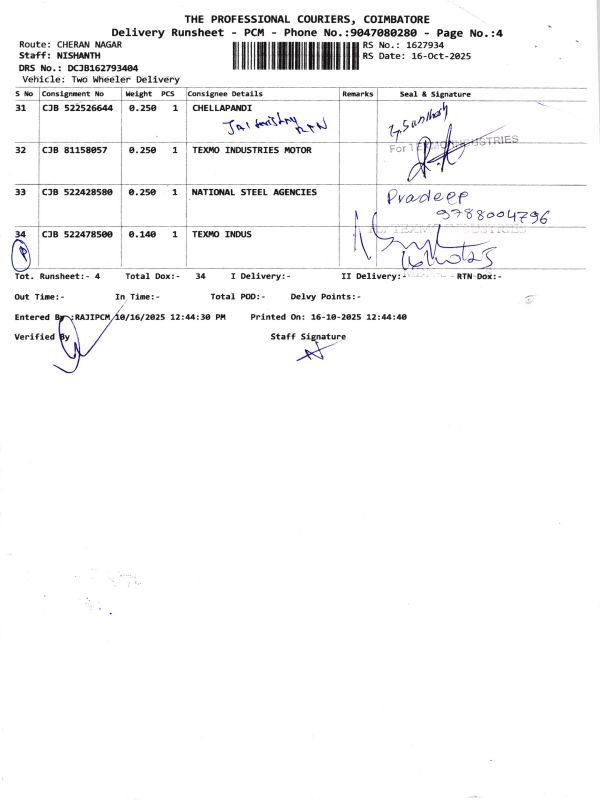 THE PROFESSIONAL COURIERS, COIMBATORE
Delivery Runsheet - PCM - Phone No.:9047080280 - Page No.:4
Route: CHERAN NAGAR RS No.: 1627934
Staff: NISHANTH RS Date: 16-Oct-2025
DRS No.: DCJB162793404
Vehicle: Two Wheeler Delivery
S No Consignment No Weight PCS Consignee Details Remarks Seal & Signature
31 CJB 522526644 0.250 1 CHELLAPANDI
32 CJB 81158057 0.250 1 TEXMO INDUSTRIES MOTOR
For TEXMO INDUSTRIES
33 CJB 522428580 0.250 1 NATIONAL STEEL AGENCIES Pradeep
9788004796
34 CJB 522478500 0.140 1 TEXMO INDUS
P
Tot. Runsheet:- 4 Total Dox:- 34 I Delivery:- II Delivery:- RTN Dox:-
Out Time:- In Time:- Total POD:- Delvy Points:-
Entered By :RAJIPCM 10/16/2025 12:44:30 PM Printed On: 16-10-2025 12:44:40
Verified By Staff Signature